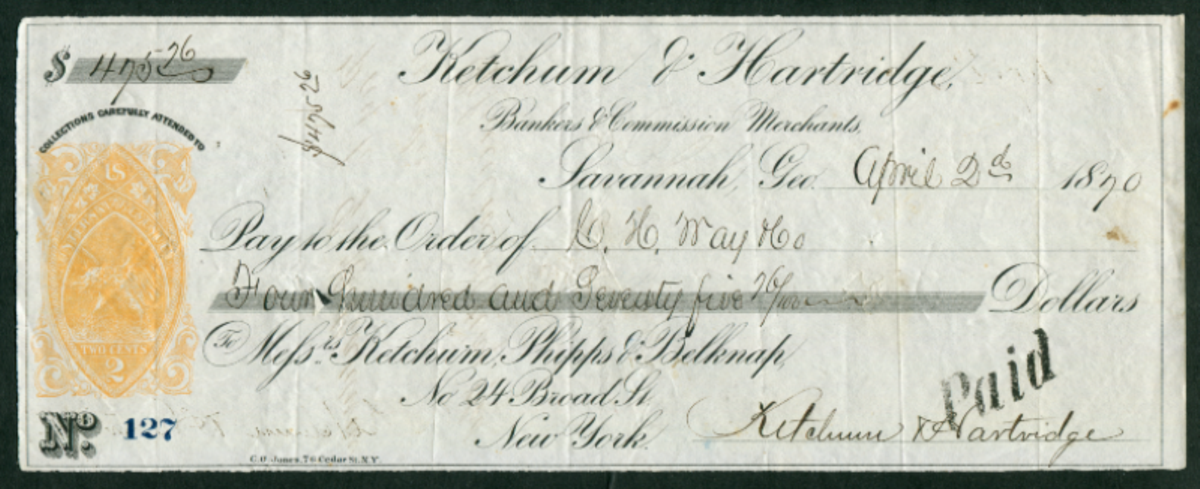 $ 475 26
Ketchum & Hartridge,
Bankers & Commission Merchants,
COLLECTIONS CAREFULLY ATTENDED TO
Savannah, Geo. April 2d 1870
US
Pay to the Order of C. H. Way &Co
Four Hundred and Seventy five 26/100 Dollars
To Messrs Ketchum, Phipps & Belknap,
TWO CENTS
2
No 24 Broad St.
New York.
Paid
Ketchum & Hartridge
No. 127
C.O. Jones, 76 Cedar St. N.Y.